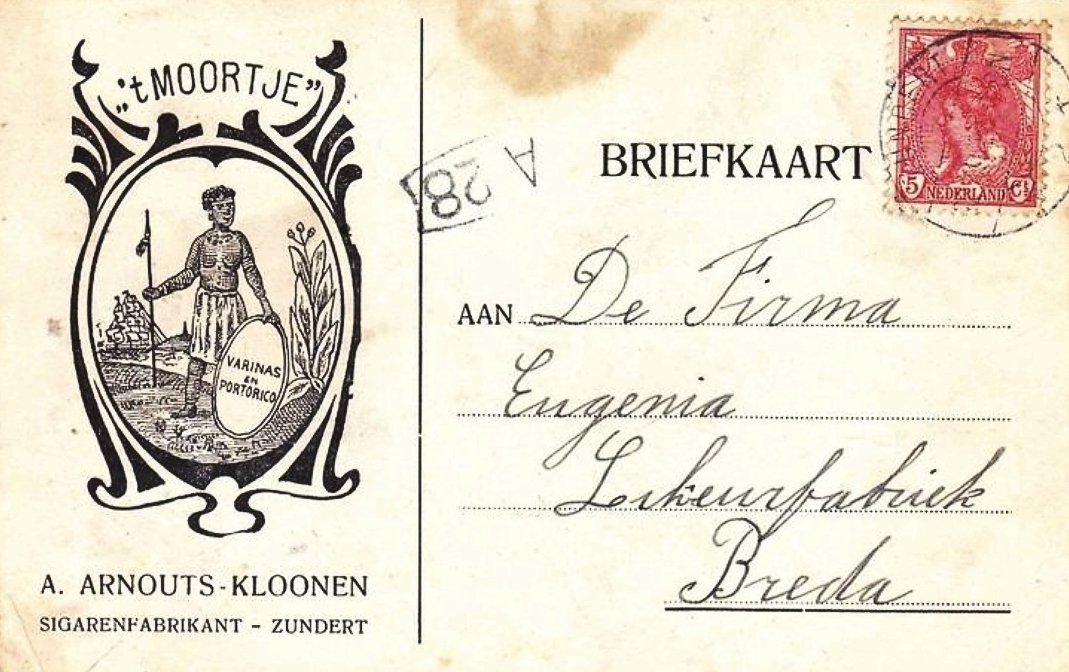 „'t MOORTJE”
VARINAS
EN
PORTORICO
A. ARNOUTS-KLOONEN
SIGARENFABRIKANT - ZUNDERT
A 28
BRIEFKAART
5 NEDERLAND Ct
AAN De Firma
Eugenia
Likeurfabriek
Breda